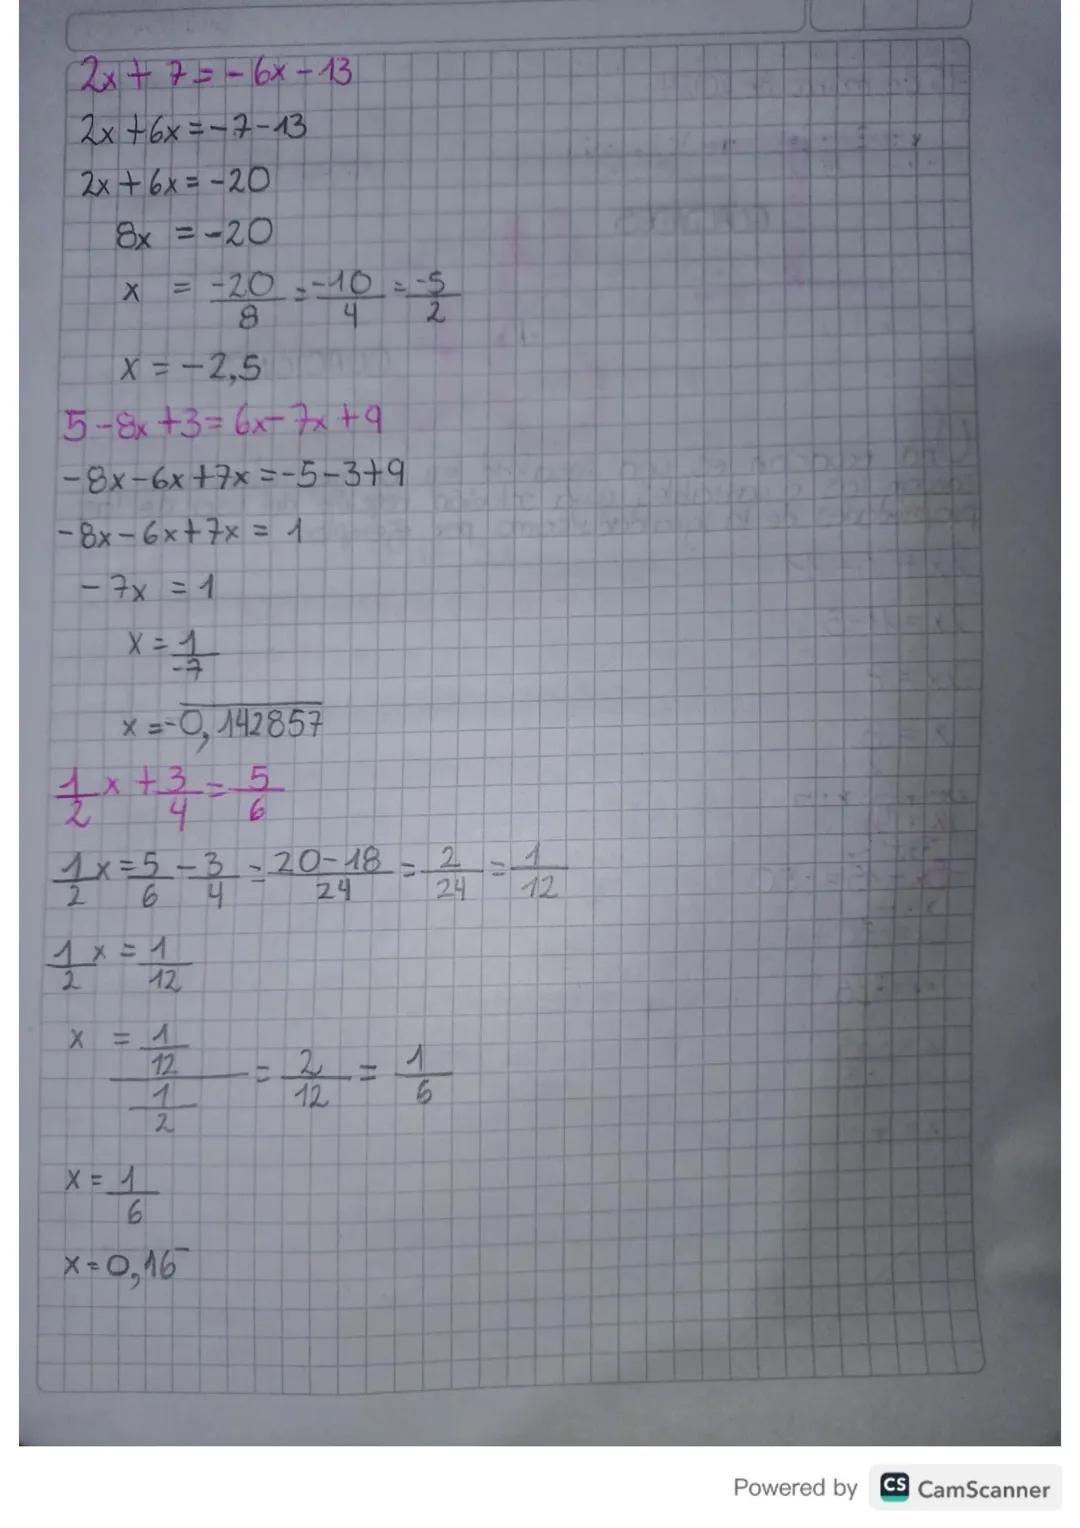 2x + 7 = - 6x - 13
2x + 6x = - 7 - 13
2x + 6x = -20
8x = -20
x = -20/8 = -10/4 = -5/2
x = -2,5
5 - 8x + 3 = 6x - 7x + 9
-8x - 6x + 7x = -5 - 3 + 9
-8x - 6x + 7x = 1
-7x = 1
x = 1/-7
x = -0,142857
1/2 x + 3/4 = 5/6
1/2 x = 5/6 - 3/4 = 20-18/24 = 2/24 = 1/12
1/2 x = 1/12
x = 1/12 / 1/2 = 2/12 = 1/6
x = 1/6
x = 0,16
Powered by CS CamScanner